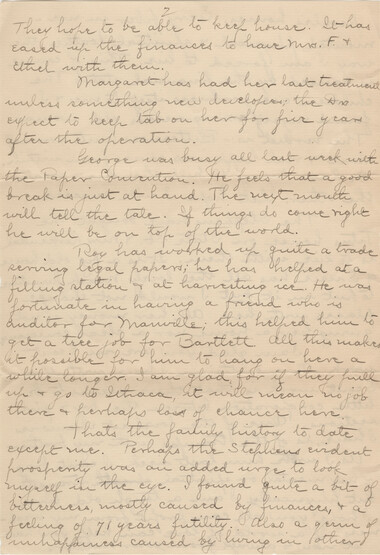 2
They hope to be able to keep house. It has
eased up the finances to have Mrs. F. &
Ethel with them.
Margaret has had her last treatment
unless something new developes; the Drs
expect to keep tab on her for five years
after the operation.
George was busy all last week with
the Paper Convention. He feels that a good
break is just at hand. The next month
will tell the tale. If things do come right
he will be on top of the world.
Roy has worked up quite a trade
serving legal papers; he has helped at a
filling station & at harvesting ice. He was
fortunate in having a friend who is
auditor for Manville; this helped him to
get a tree job for Bartlett All this makes
it possible for him to hang on here a
while longer. I am glad for if they pull
up & go to Ithaca, it will mean no job
there & perhaps loss of chance here.
Thats the family history to date
except me. Perhaps the Stephens evident
prosperity was an added urge to look
myself in the eye. I found quite a bit of
bitterness, mostly caused by finances, & a
feeling of 71 years futility. Also a germ of
unhappiness caused by living in (other